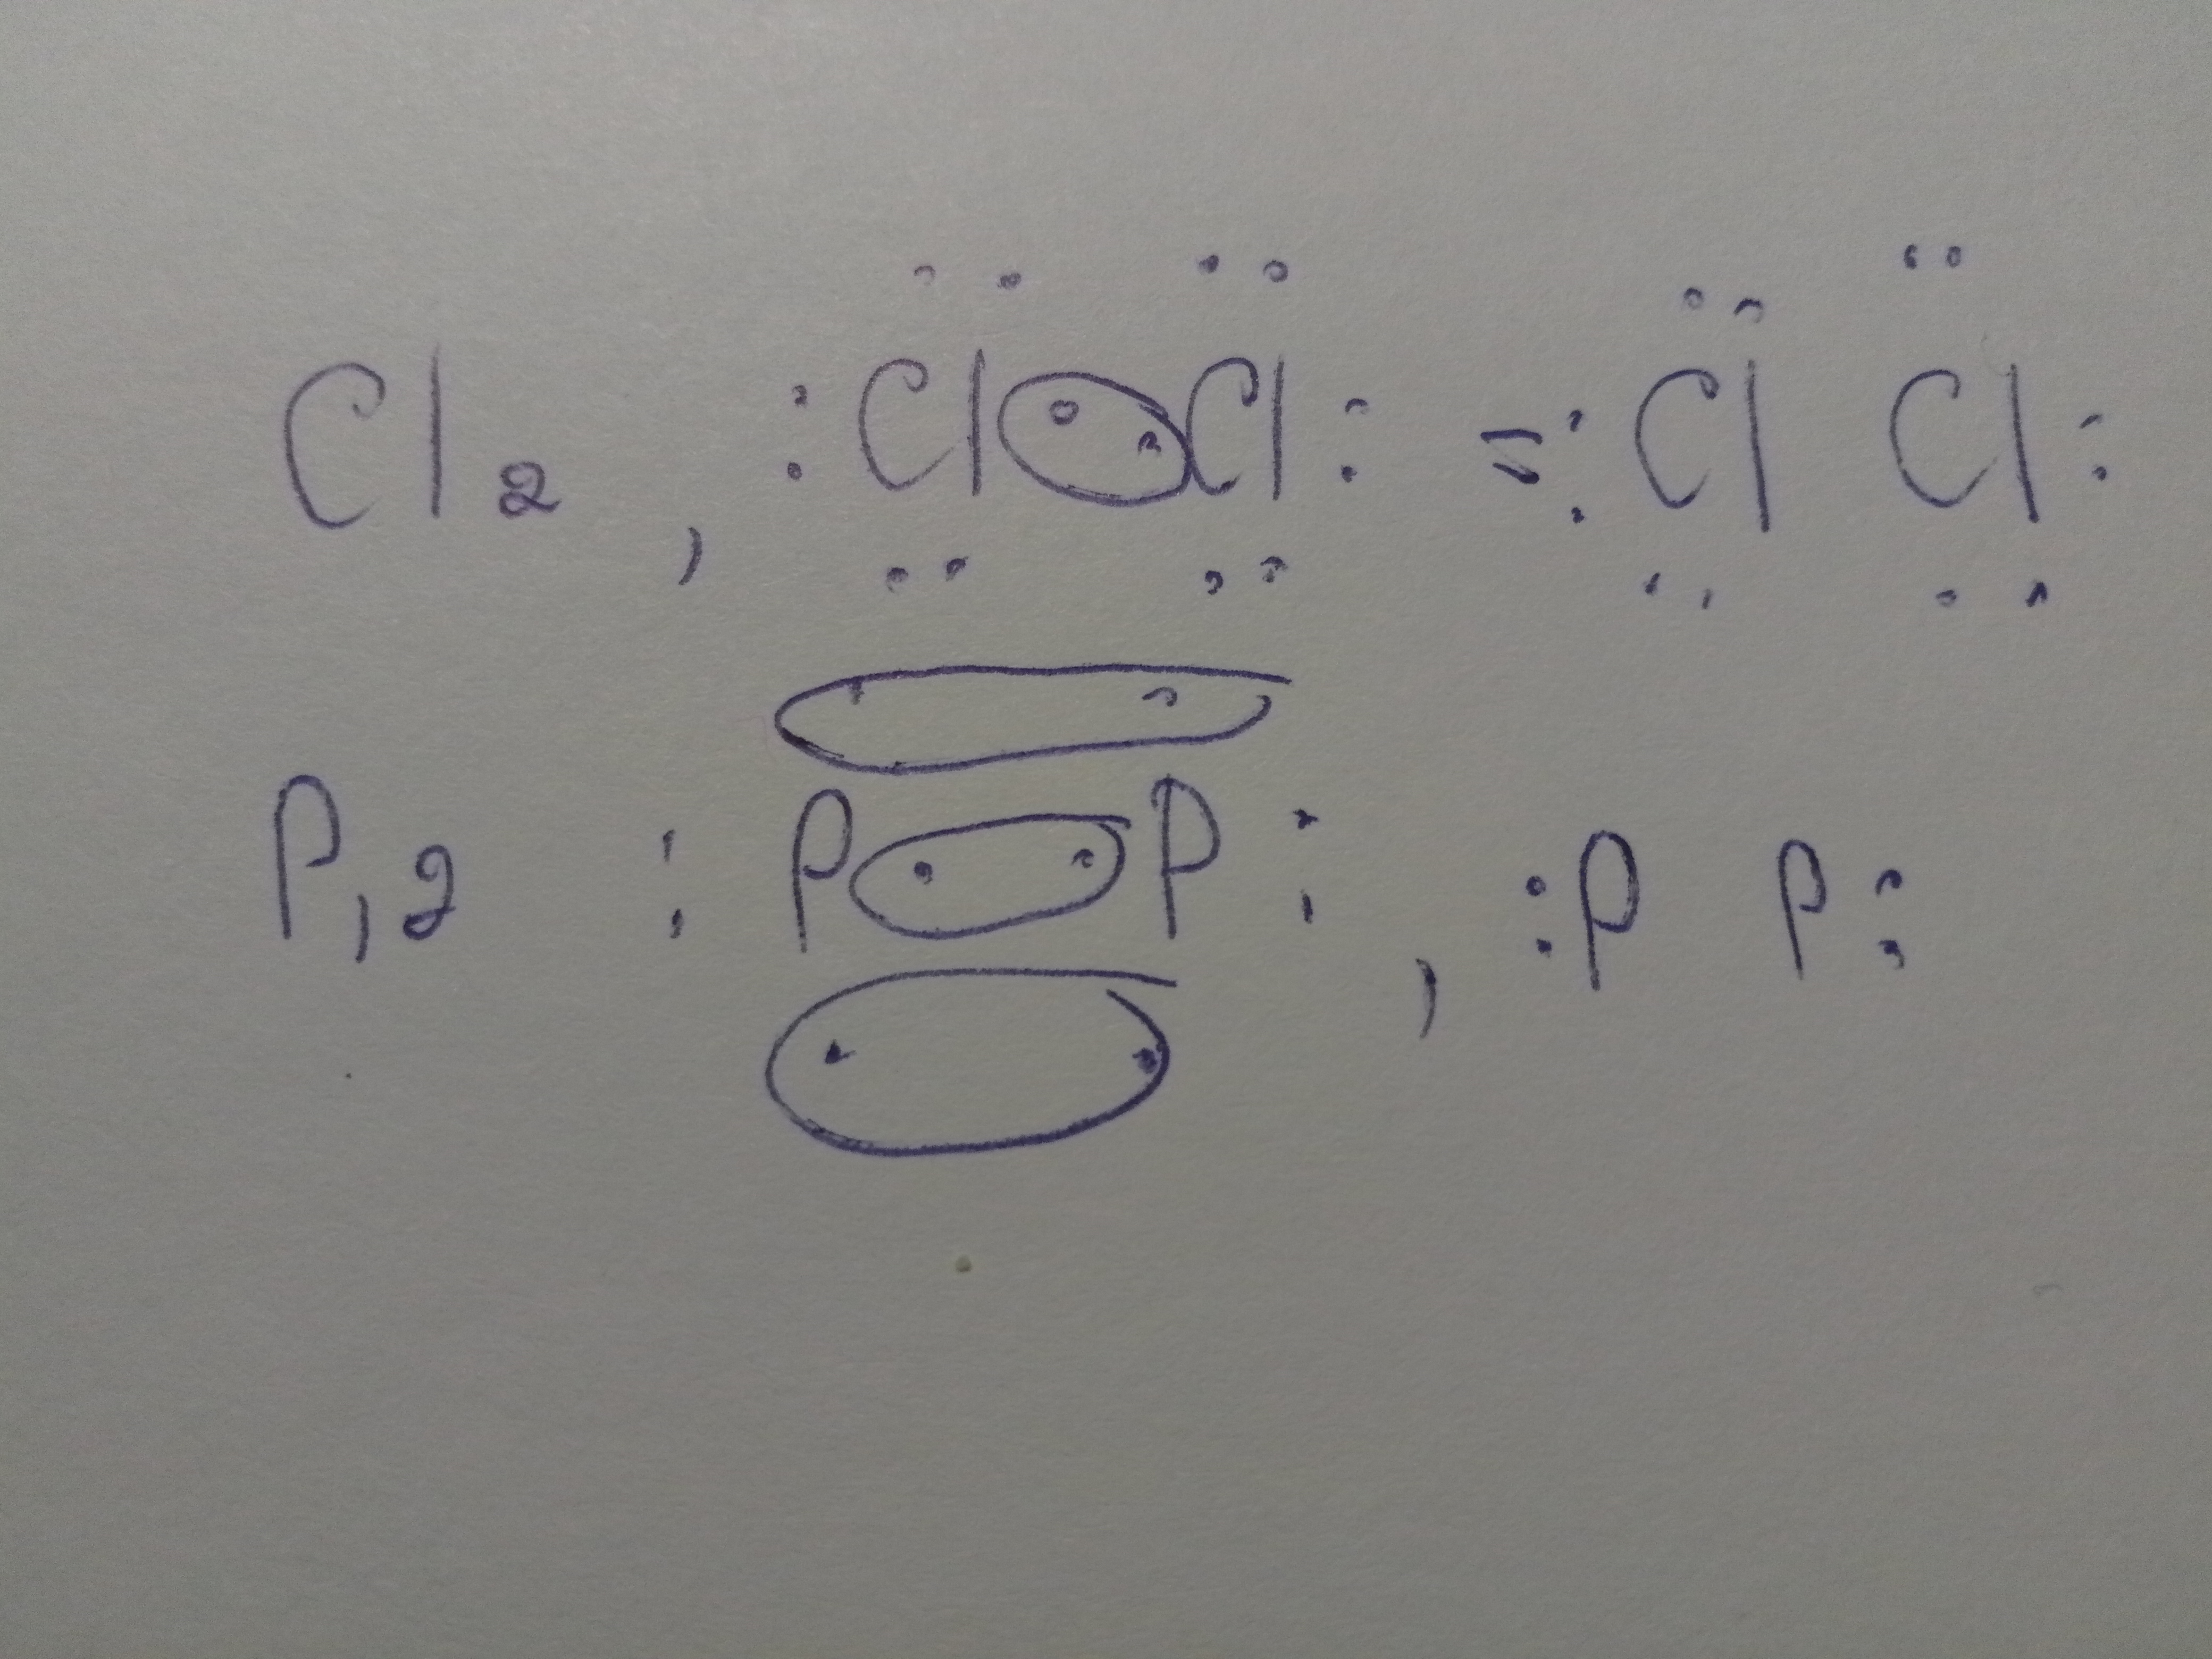 Cl₂, :Cl··Cl: = :Cl Cl:
P,2 :P··P:, :P P: